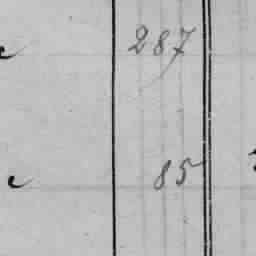 287
85